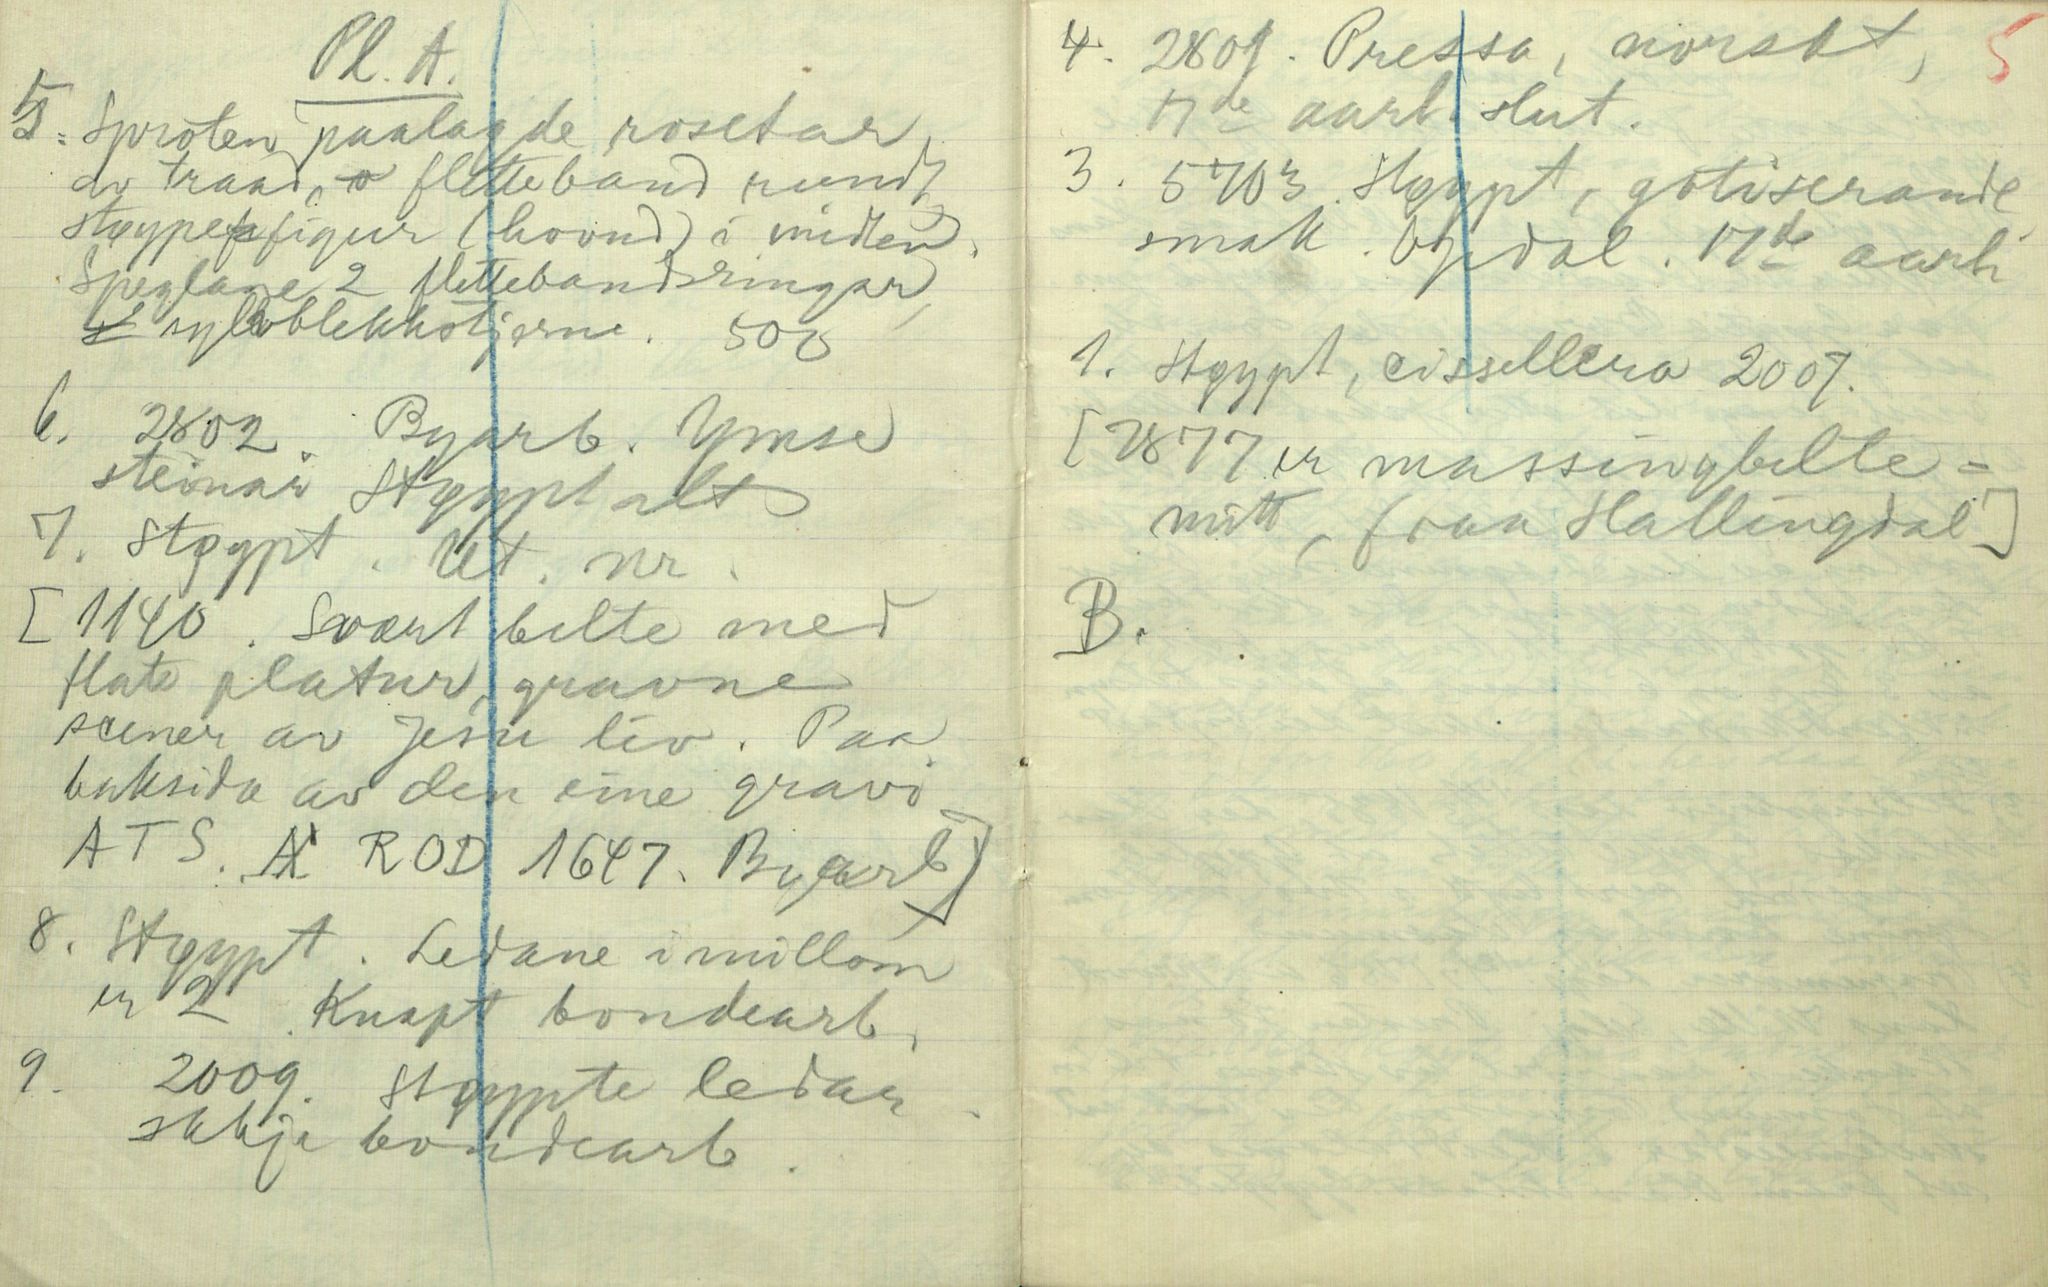 Pl. A.
5. Sproten paalagde rosetar
av traad, o fletteband rundt
støypefigur (hovud) i midten.
Speglane 2 flettebandsringar,
sylvblekkhotjerne. 503
6. 2802. Byarb. Ymse
steinar Støypt alt
7. Støypt. Ut. nr.
[1140. Svært belte med
flate platur, gravne
scener av Jesu liv. Paa
baksida av den eine grav:
ATS. ROD 1647. Byarb]
8. Støypt. Ledane imillom
er 2. Knapt bondearb.
9. 2009. Støypte ledar.
ikkje bondearb.
4. 2809. Pressa, norskt, 5
17de aarh. slut.
3. 5703. Støypt, gotiserande
smak. Opdal. 17de aarh
1. Støypt, cissellera 2007.
[2877 er massingbelte-
mitt, fraa Hallingdal]
B.